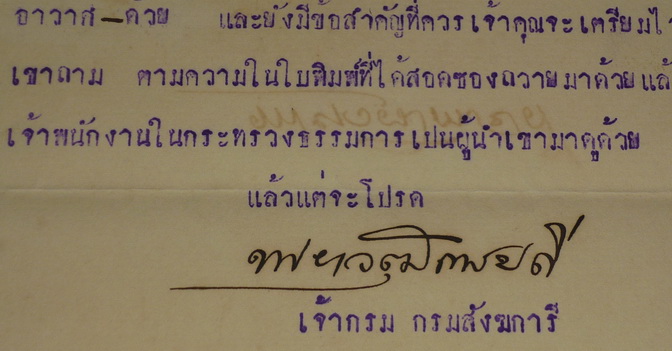 อาวาศ-ด้วย และยังมีข้อสำคัญที่ควรเจ้าคุณจะเตรียมไว้
เขาถาม ตามความในใบพิมพ์ที่ได้สอดซองถวายมาด้วยแล้
เจ้าพนักงานในกระทรวงธรรมการเปนผู้นำเขามาดูด้วย
แล้วแต่จะโปรด
เจ้ากรม กรมสังฆการี